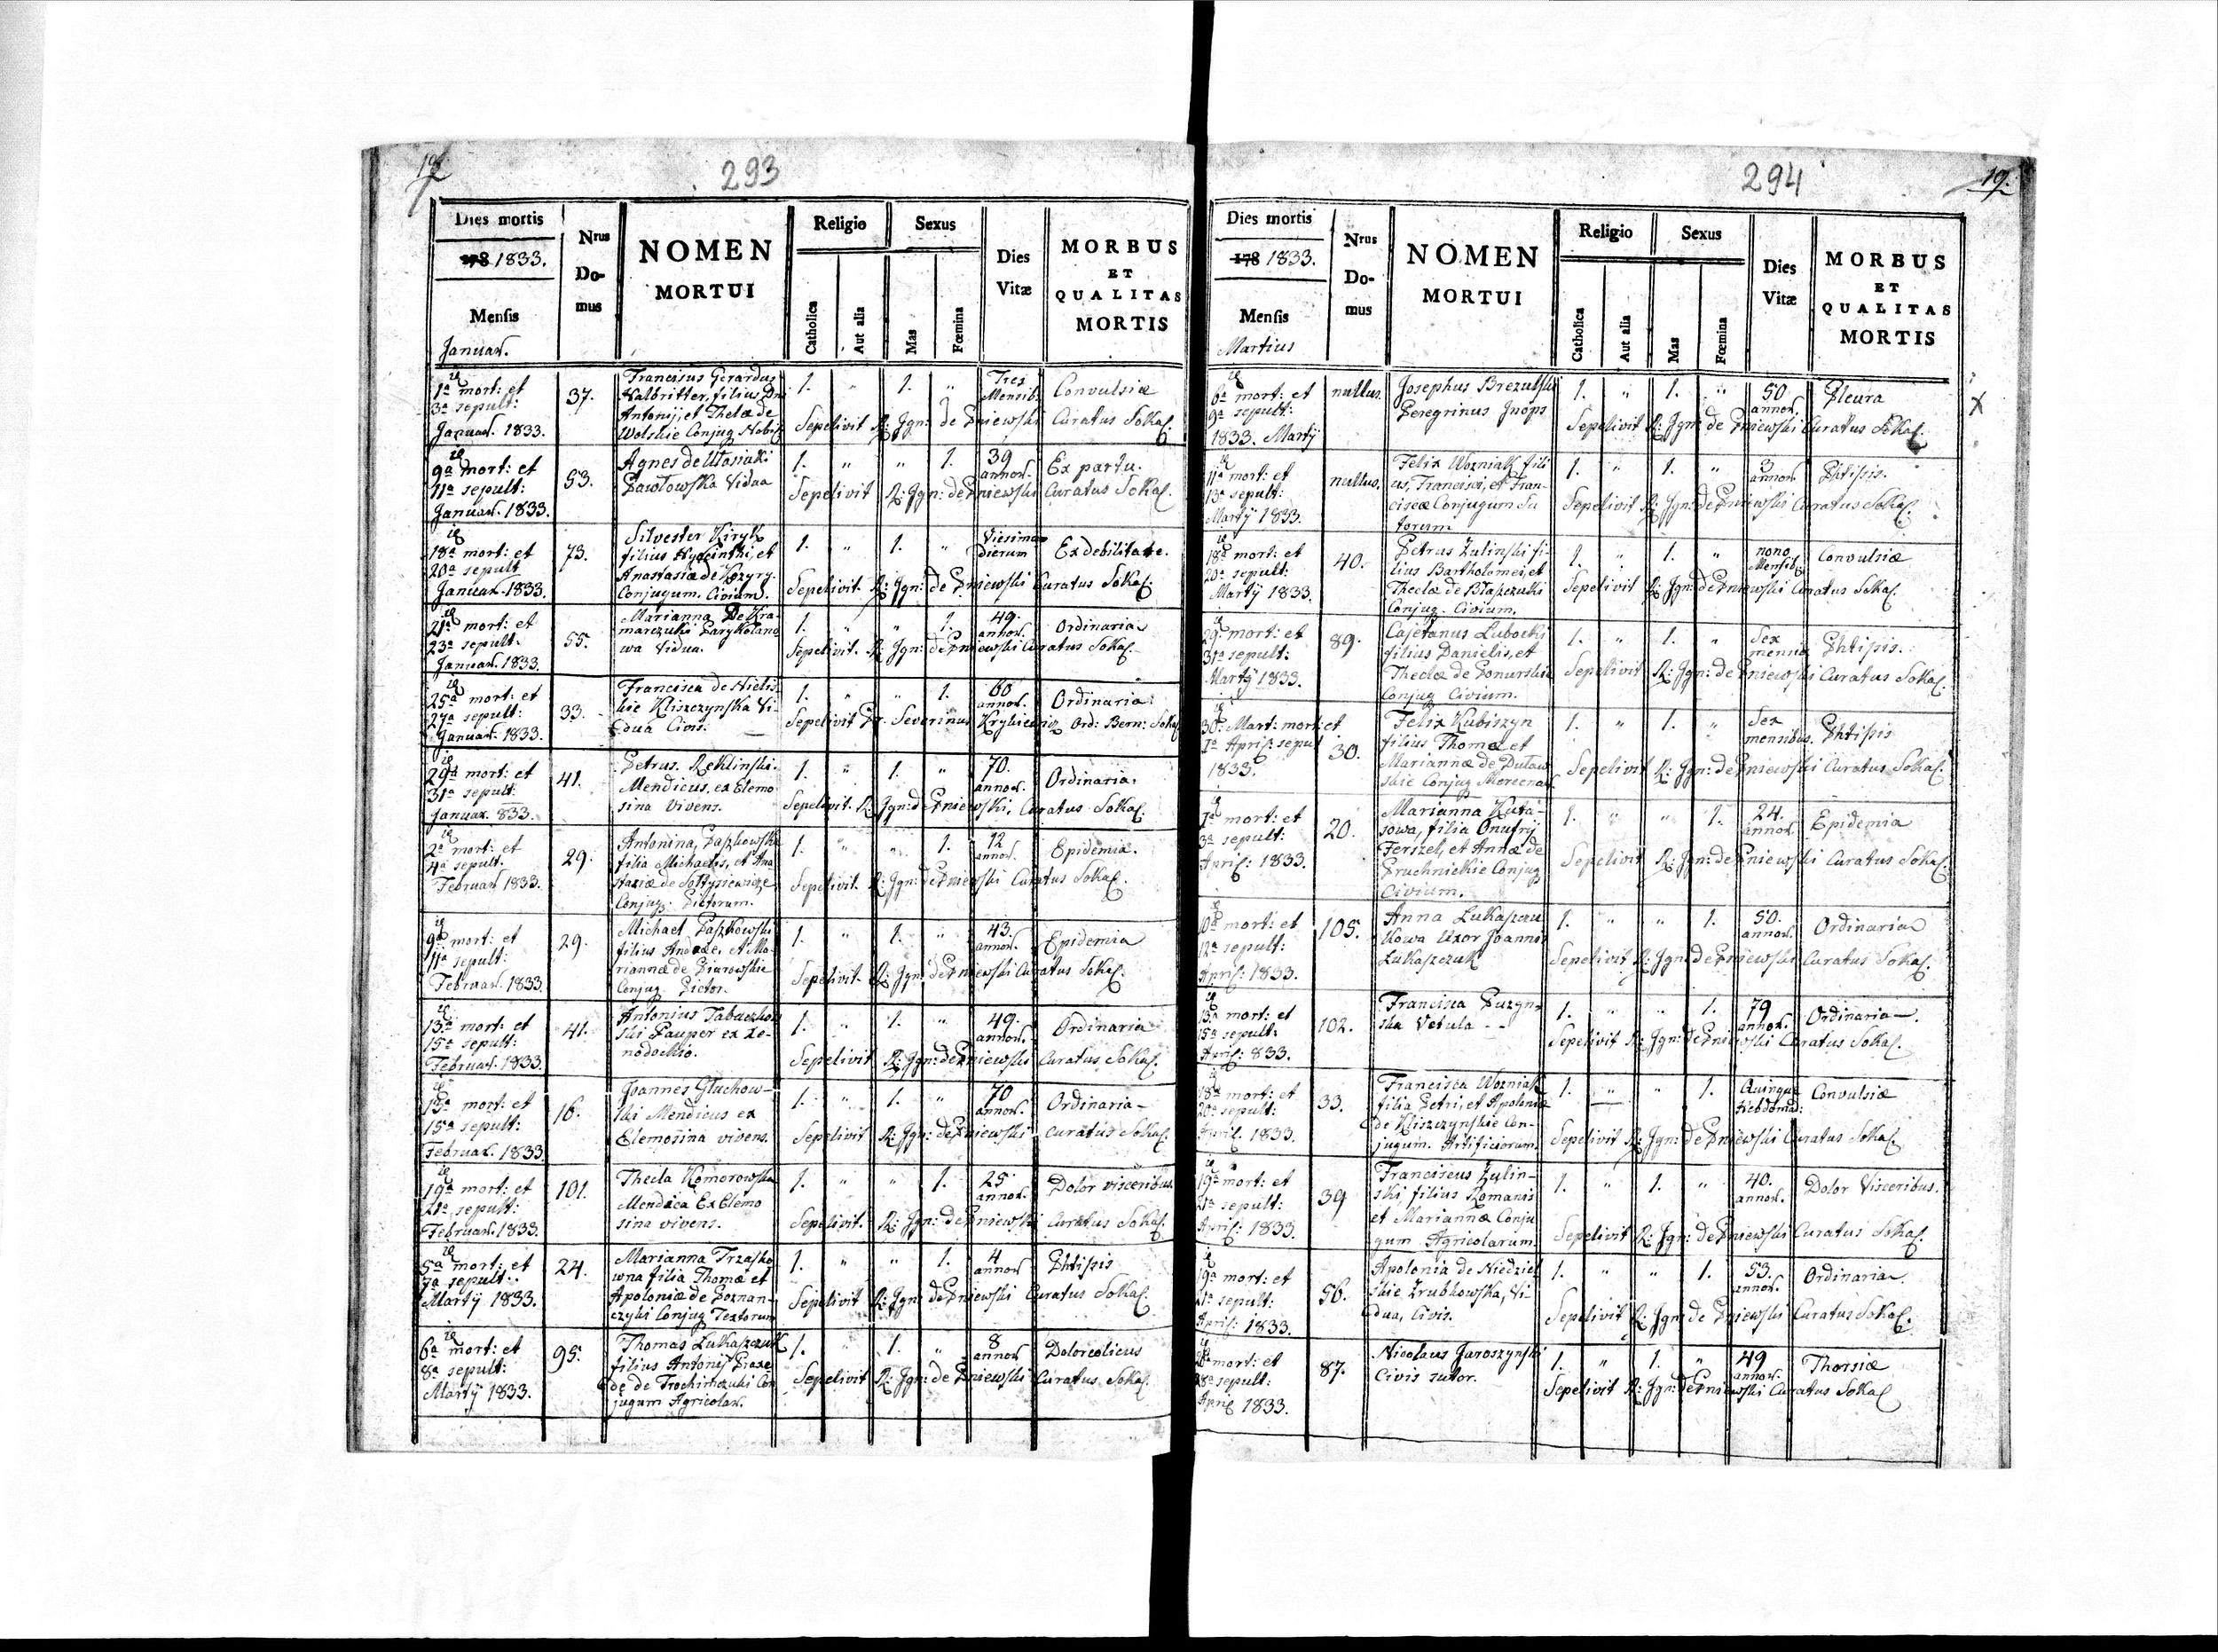 293
Dies mortis
178 1833.
Mensis
Januar.
Nrus
Do-
mus
NOMEN
MORTUI
Religio
Catholica
Aut alia
Sexus
Mas
Fœmina
Dies
Vitæ
MORBUS
ET
QUALITAS
MORTIS
1a mort: et
3a sepult:
Januar. 1833.
37.
Franciscus Gerardus
Halbritter, filius Dni
Antonij, et Theclæ de
Wolskie Conjug Nobil
1. " 1. "
Tres
Mensib.
Convulsiæ
Sepelivit R: Jgn: de Pniewski Curatus Sokal.
9a mort: et
11a sepult:
Januar. 1833.
53.
Agnes de
Pawlowska Vidua
1. " " 1.
39
annor.
Ex partu.
Sepelivit R: Jgn: de Pniewski Curatus Sokal.
18a mort: et
20a sepult
Januar. 1833.
73.
Silvester Kiryk
filius Hyacinthi, et
Anastasiæ de Kozyry.
Conjugum. Civium.
1. " 1. "
dierum
Ex debilitate.
Sepelivit. R: Jgn: de Pniewski Curatus Sokal.
21a mort: et
23a sepult:
Januar. 1833.
55.
Marianna De Kra-
marczuki
wa Vidua.
1. " " 1.
49.
annor.
Ordinaria
Sepelivit. R: Jgn: de Pniewski Curatus Sokal.
25a mort: et
27a sepult:
Januar. 1833.
33.
Francisca de Nielis
kie Kliszczynska Vi-
dua Civis.
1. " " 1.
60
annor.
Ordinaria
Sepelivit Pr. Severinus Ord: Bern: Sokal
29a mort: et
31a sepult:
Januar. 833.
41.
Petrus. Reklinski.
Mendicus, ex Elemo
sina vivens.
1. " 1. "
70.
annor.
Ordinaria.
Sepelivit. R: Jgn: de Pniewski, Curatus Sokal.
2a mort: et
4a sepult.
Februar. 1833.
29.
Antonina, Paszkowska
filia Michaelis, et Ana
staziæ de Soltysiewicze
Conjug: Pictorum.
1. " " 1.
12
annor.
Epidemia.
Sepelivit. R: Jgn: de Pniewski Curatus Sokal.
9a mort: et
11a sepult:
Februar. 1833.
29.
Michael Paszkowski
filius Andreæ, et Ma-
riannæ de Piurowskie
Conjug. Pictor.
1. " 1. "
43.
annor.
Epidemia
Sepelivit. R: Jgn: de Pniewski Curatus Sokal.
13a mort: et
15a sepult:
Februar. 1833
41.
Antonius Tabaczkow
ski Pauper ex Xe-
nodochio.
1. " 1. "
49.
annor.
Ordinaria
Sepelivit R: Jgn: de Pniewski Curatus Sokal.
13a mort: et
15a sepult:
Februar. 1833
16.
Joannes Gluchow-
ski Mendicus ex
Elemosina vivens.
1. " 1. "
70
annor.
Ordinaria-
Sepelivit R: Jgn: de Pniewski Curatus Sokal.
19a mort: et
21a sepult:
Februar. 1833.
101.
Thecla Komorowska
Mendica Ex Elemo
sina vivens.
1. " " 1.
25
annor.
Dolor visceribus.
Sepelivit. R: Jgn: de Pniewski Curatus Sokal.
5a mort: et
7a sepult:
Martij 1833.
24.
Marianna Trzasko
wna filia Thomæ et
Apoloniæ de Poznan-
czyki Conjug Textorum
1. " " 1.
4
annor
Phtisis
Sepelivit R: Jgn: de Pniewski Curatus Sokal.
6a mort: et
8a sepult:
Martij 1833.
95.
Thomas Lukaszczuk
filius Antonij
de Trochimczuki Con
jugum Agricolar.
1. " 1. "
8
annor
Dolor colicus
Sepelivit R: Jgn: de Pniewski Curatus Sokal.
294
19.
Dies mortis
178 1833.
Mensis
Martius
Nrus
Do-
mus
NOMEN
MORTUI
Religio
Catholica
Aut alia
Sexus
Mas
Fœmina
Dies
Vitæ
MORBUS
ET
QUALITAS
MORTIS
6a mort: et
9a sepult:
1833. Martij
nullus.
Josephus Brezulski
Peregrinus Jnops
1. " 1. "
50
annor.
Pleura
X
Sepelivit R: Jgn: de Pniewski Curatus Sokal.
11a mort: et
13a sepult:
Martij 1833.
nullus.
Felix Wozniak fili
us, Francisci, et Fran-
ciscæ Conjugum Su
torum
1. " 1. "
3
annor.
Phtisis.
Sepelivit R: Jgn: de Pniewski Curatus Sokal.
18a mort: et
20a sepult:
Martij 1833.
40.
Petrus Zulinski fi-
lius Bartholomei, et
Theclæ de Blaszczuki
Conjug. Civium.
1. " 1. "
nono
Mensib.
Convulsiæ
Sepelivit R: Jgn: de Pniewski Curatus Sokal.
29a mort: et
31a sepult:
Martij 1833.
89.
Cajetanus Lubocki
filius Danielis, et
Theclæ de Ponurskie
Conjug Civium.
1. " 1. "
Sex
Phtisis.
Sepelivit R: Jgn: de Pniewski Curatus Sokal.
30. Mart: mort: et
1a April: sepul
1833.
30.
Felix Kubiszyn
filius Thomæ et
Mariannæ de Dulaw
skie Conjug Mercenar
1. " 1. "
Sex
mensibus.
Phtisis
Sepelivit R: Jgn: de Pniewski Curatus Sokal.
1a mort: et
3a sepult:
April: 1833.
20.
Marianna Kuta-
sowa, filia Onufrij
Ferszet, et Annæ de
Pruchnickie Conjug
Civium.
1. " " 1.
24.
annor.
Epidemia
Sepelivit R: Jgn: de Pniewski Curatus Sokal.
10a mort: et
12a sepult:
April: 1833.
105.
Anna Lukaszczu
kowa Uxor Joannis
Lukaszczuk
1. " " 1.
50.
annor.
Ordinaria
Sepelivit R: Jgn: de Pniewski Curatus Sokal.
13a mort: et
15a sepult:
April: 833.
102.
Francisca Puzyn-
ska Vetula - -
1. " " 1.
79
annor.
Ordinaria-.
Sepelivit R: Jgn: de Pniewski Curatus Sokal.
18a mort: et
20a sepult:
April. 1833.
33.
Francisca Wozniak
filia Petri, et Apoloniæ
de Kliszczynskie Con-
jugum. Artificiorum.
1. " " 1.
Quinque
Hebdomad:
Convulsiæ
Sepelivit R: Jgn: de Pniewski Curatus Sokal.
19a mort: et
21a sepult:
April: 1833.
39
Franciscus Zulin-
ski, filius Romanis
et Mariannæ Conju
gum Agricolarum.
1. " 1. "
40.
annor.
Dolor Visceribus.
Sepelivit R: Jgn: de Pniewski Curatus Sokal.
19a mort: et
21a sepult:
April: 1833.
56.
Apolonia de Niedziel
skie Zrubkowska, Vi-
dua, Civis.
1. " " 1.
53.
annor.
Ordinaria.
Sepelivit R: Jgn: de Pniewski Curatus Sokal.
mort: et
28a sepult:
April 1833.
87.
Nicolaus Jaroszynski
Civis sutor.
1. " 1. "
49
annor.
Thorsiæ
Sepelivit R: Jgn: de Pniewski Curatus Sokal